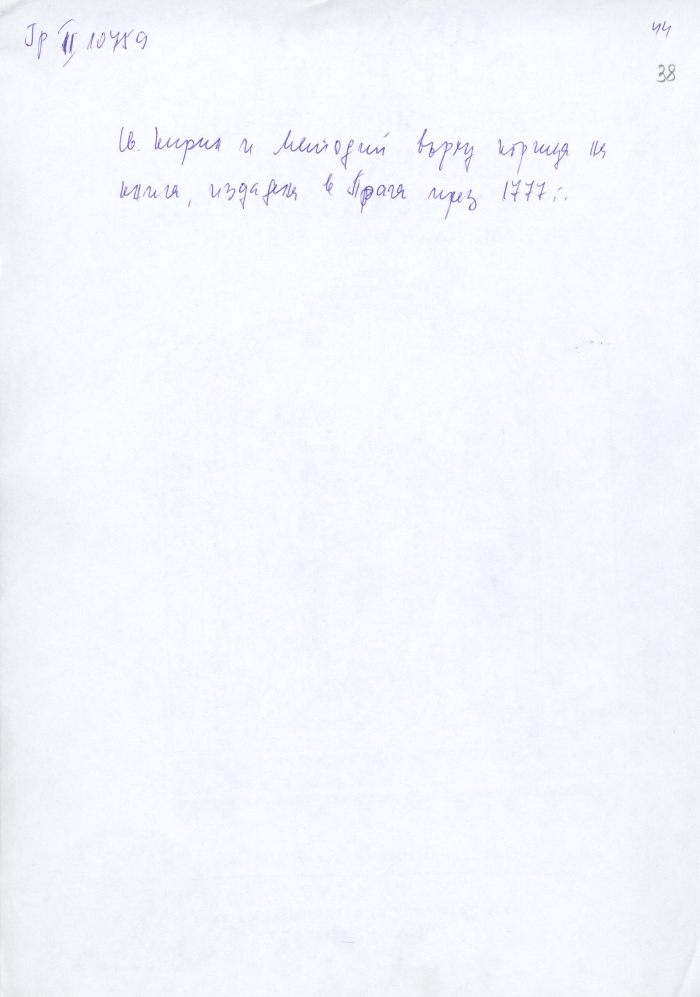 Гр II 10759
44
38
Св. Кирил и Методий върху корица на
книга, издадена в Прага през 1777 г.